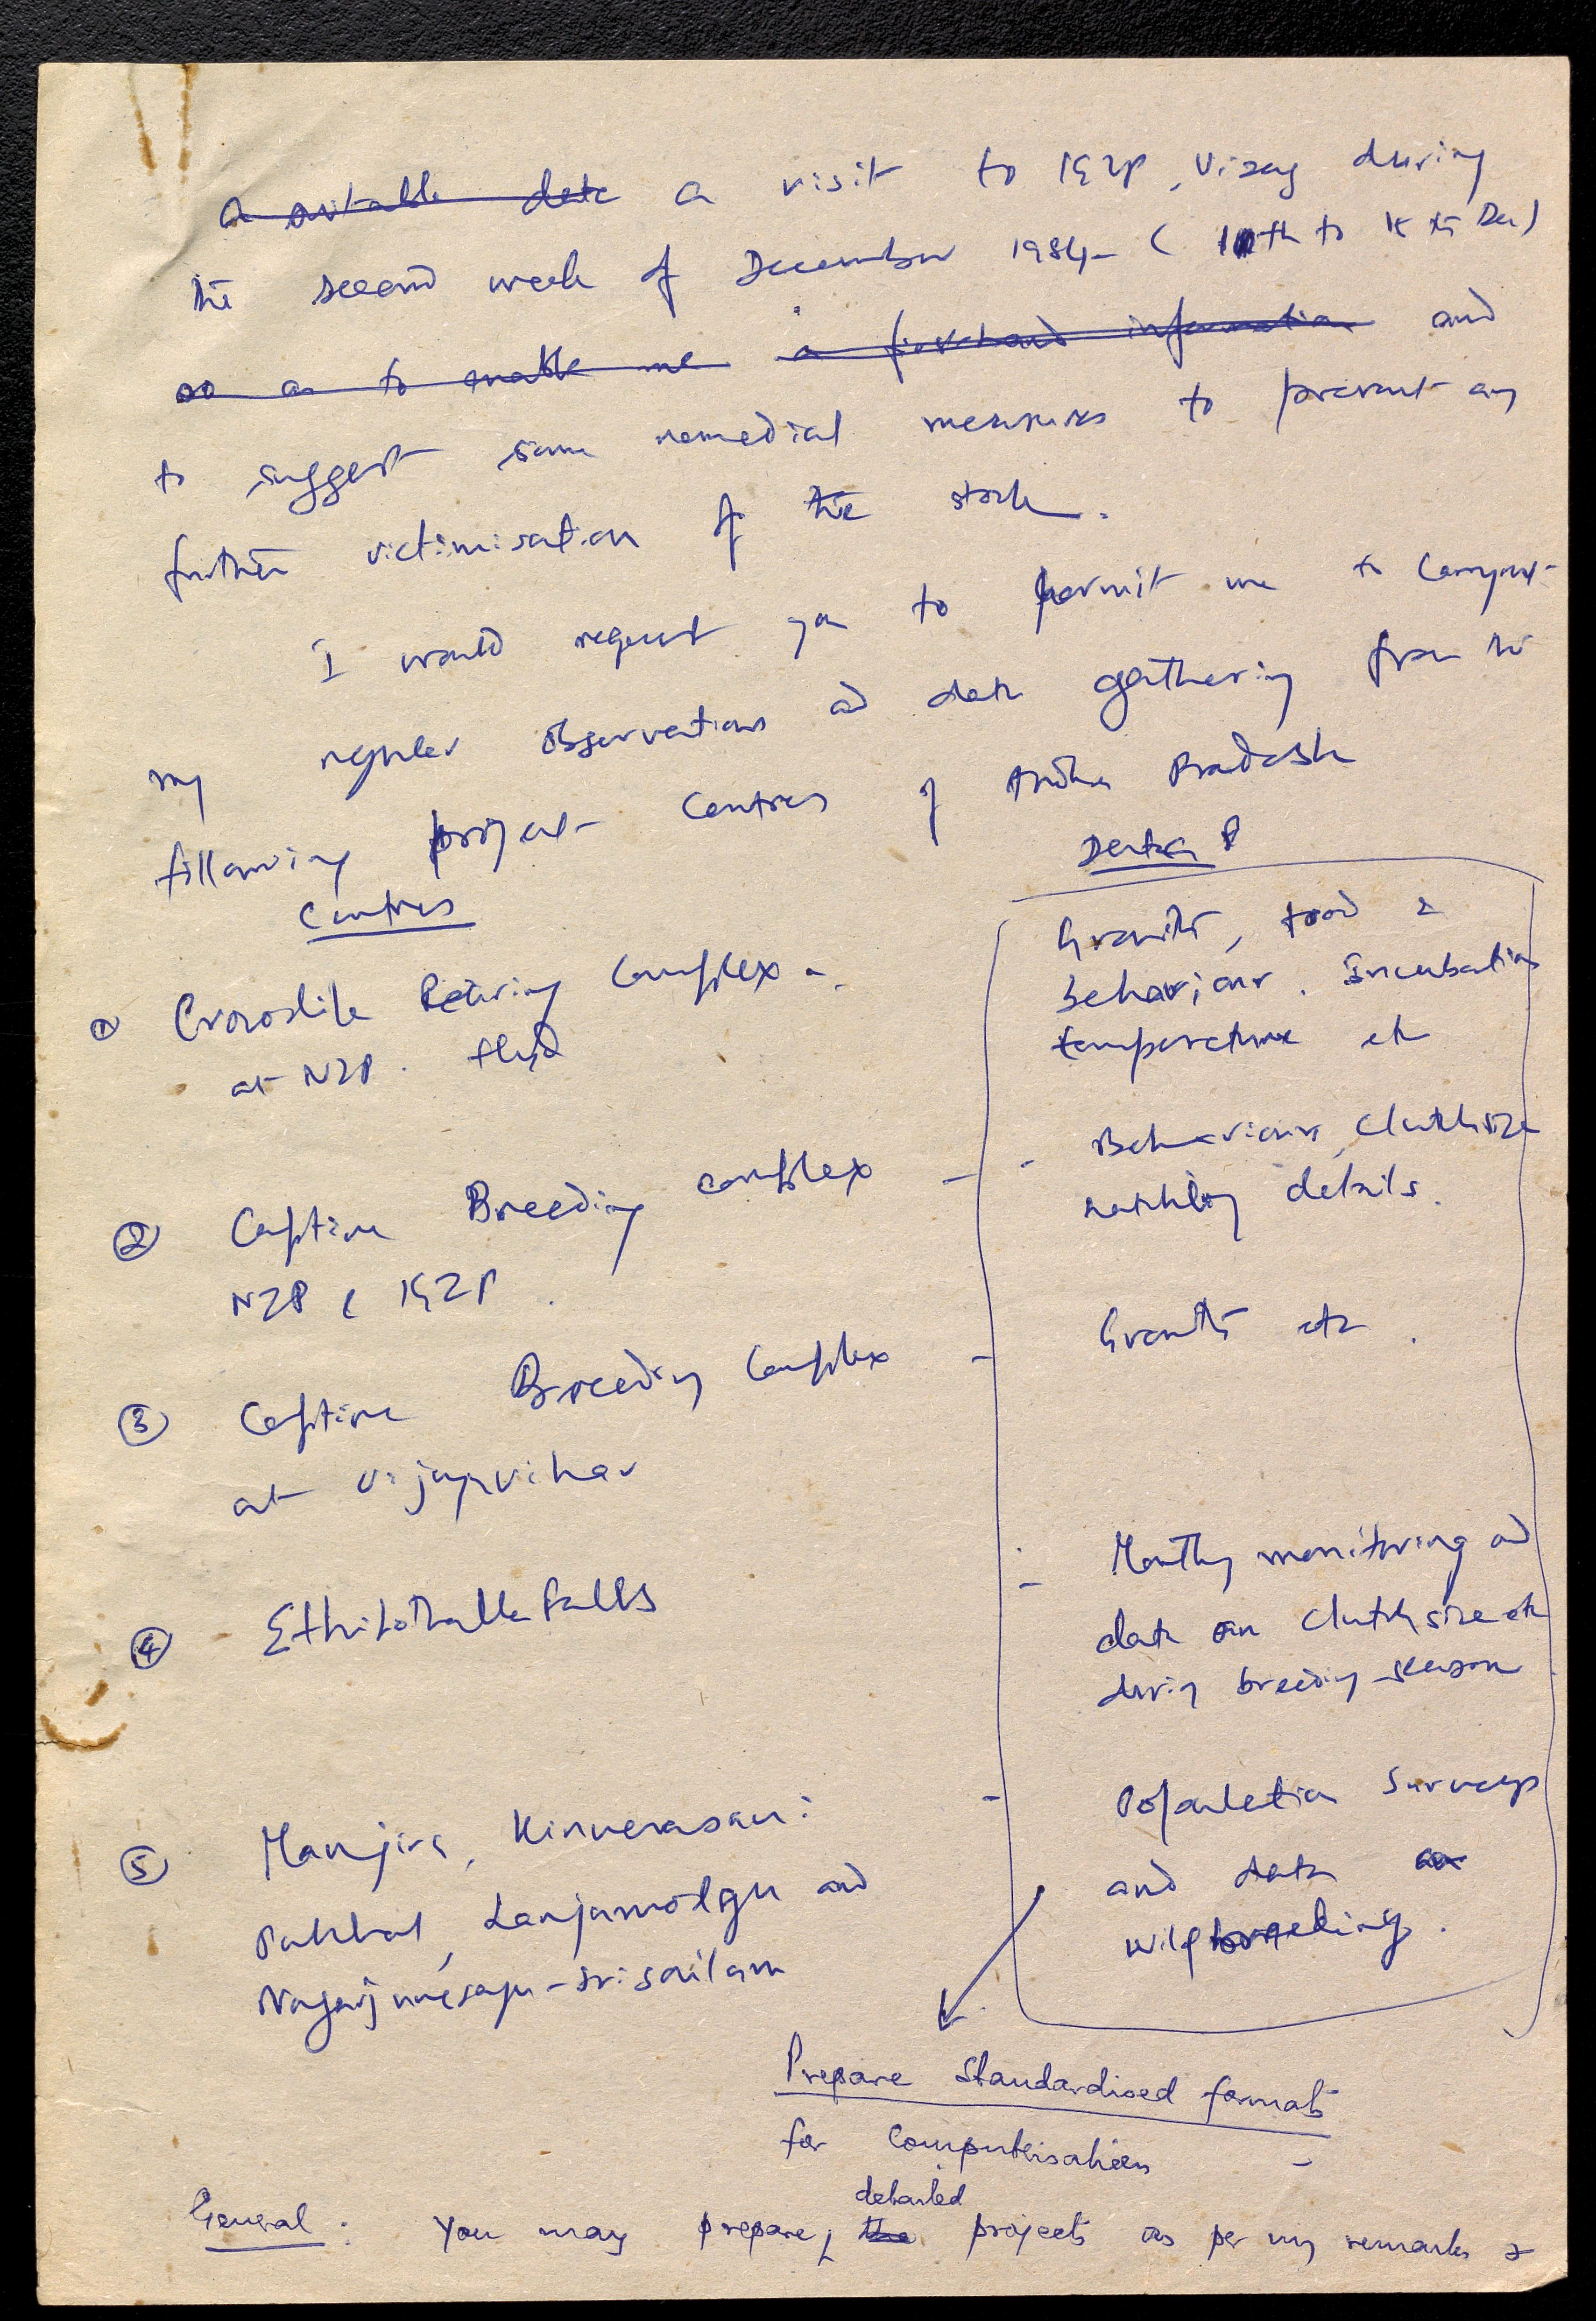 a suitable date a visit to IGZP, Vizag during
the second week of December 1984 - ( 10th to 15th Dec)
so as to enable me a firsthand information and
to suggest some remedial measures to prevent any
further victimisation of the stock.
I would request you to permit me to
my regular observations and data gathering from the
following project centres of Andhra Pradesh
Centres
Data
① Crocodile Rearing Complex -
at NZP. Hyd
Growth, food &
behaviour. Incubation
temperature etc
② Captive Breeding complex -
NZP & IGZP.
- Behaviour, Clutch size
hatchling details.
③ Captive Breeding Complex -
at Vijayvihar
Growth etc.
④ Ethipothalla falls
- Monthly monitoring and
data on Clutch size etc
during breeding season
⑤ Manjira, Kinnerasani
Pakhal, Lanjamadgu and
Nagarjunasagar - Srisailam
- Population Surveys
and data on
wild breeding.
Prepare Standardised formats
for Computerisation -
detailed
General: You may prepare the projects as per my remarks &